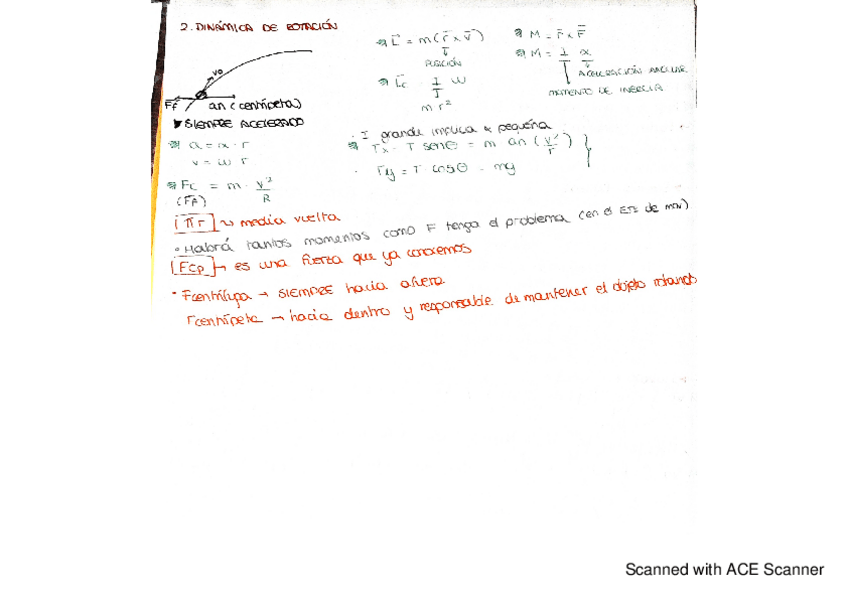 2. DINÁMICA DE ROTACIÓN
L = m(r x v)
POSICIÓN
Lc = I w
m r²
M = r x F
M = I α
ACELERACIÓN ANGULAR
MOMENTO DE INERCIA
vo
Ff
an (centrípeta)
SIEMPRE ACELERADO
a = α · r
v = w r
Fc = m · v²/R
(Ff)
· I grande implica α pequeña
Tx = T senθ = m an (v²/r)
Ty = T cosθ = mg
[πr] → media vuelta
· Habrá tantos momentos como F tenga el problema (en el de mov)
[Fcp] → es una fuerza que ya conocemos
· Fcentrífuga → SIEMPRE hacia afuera
Fcentrípeta → hacia dentro y responsable de mantener el objeto rotando
Scanned with ACE Scanner